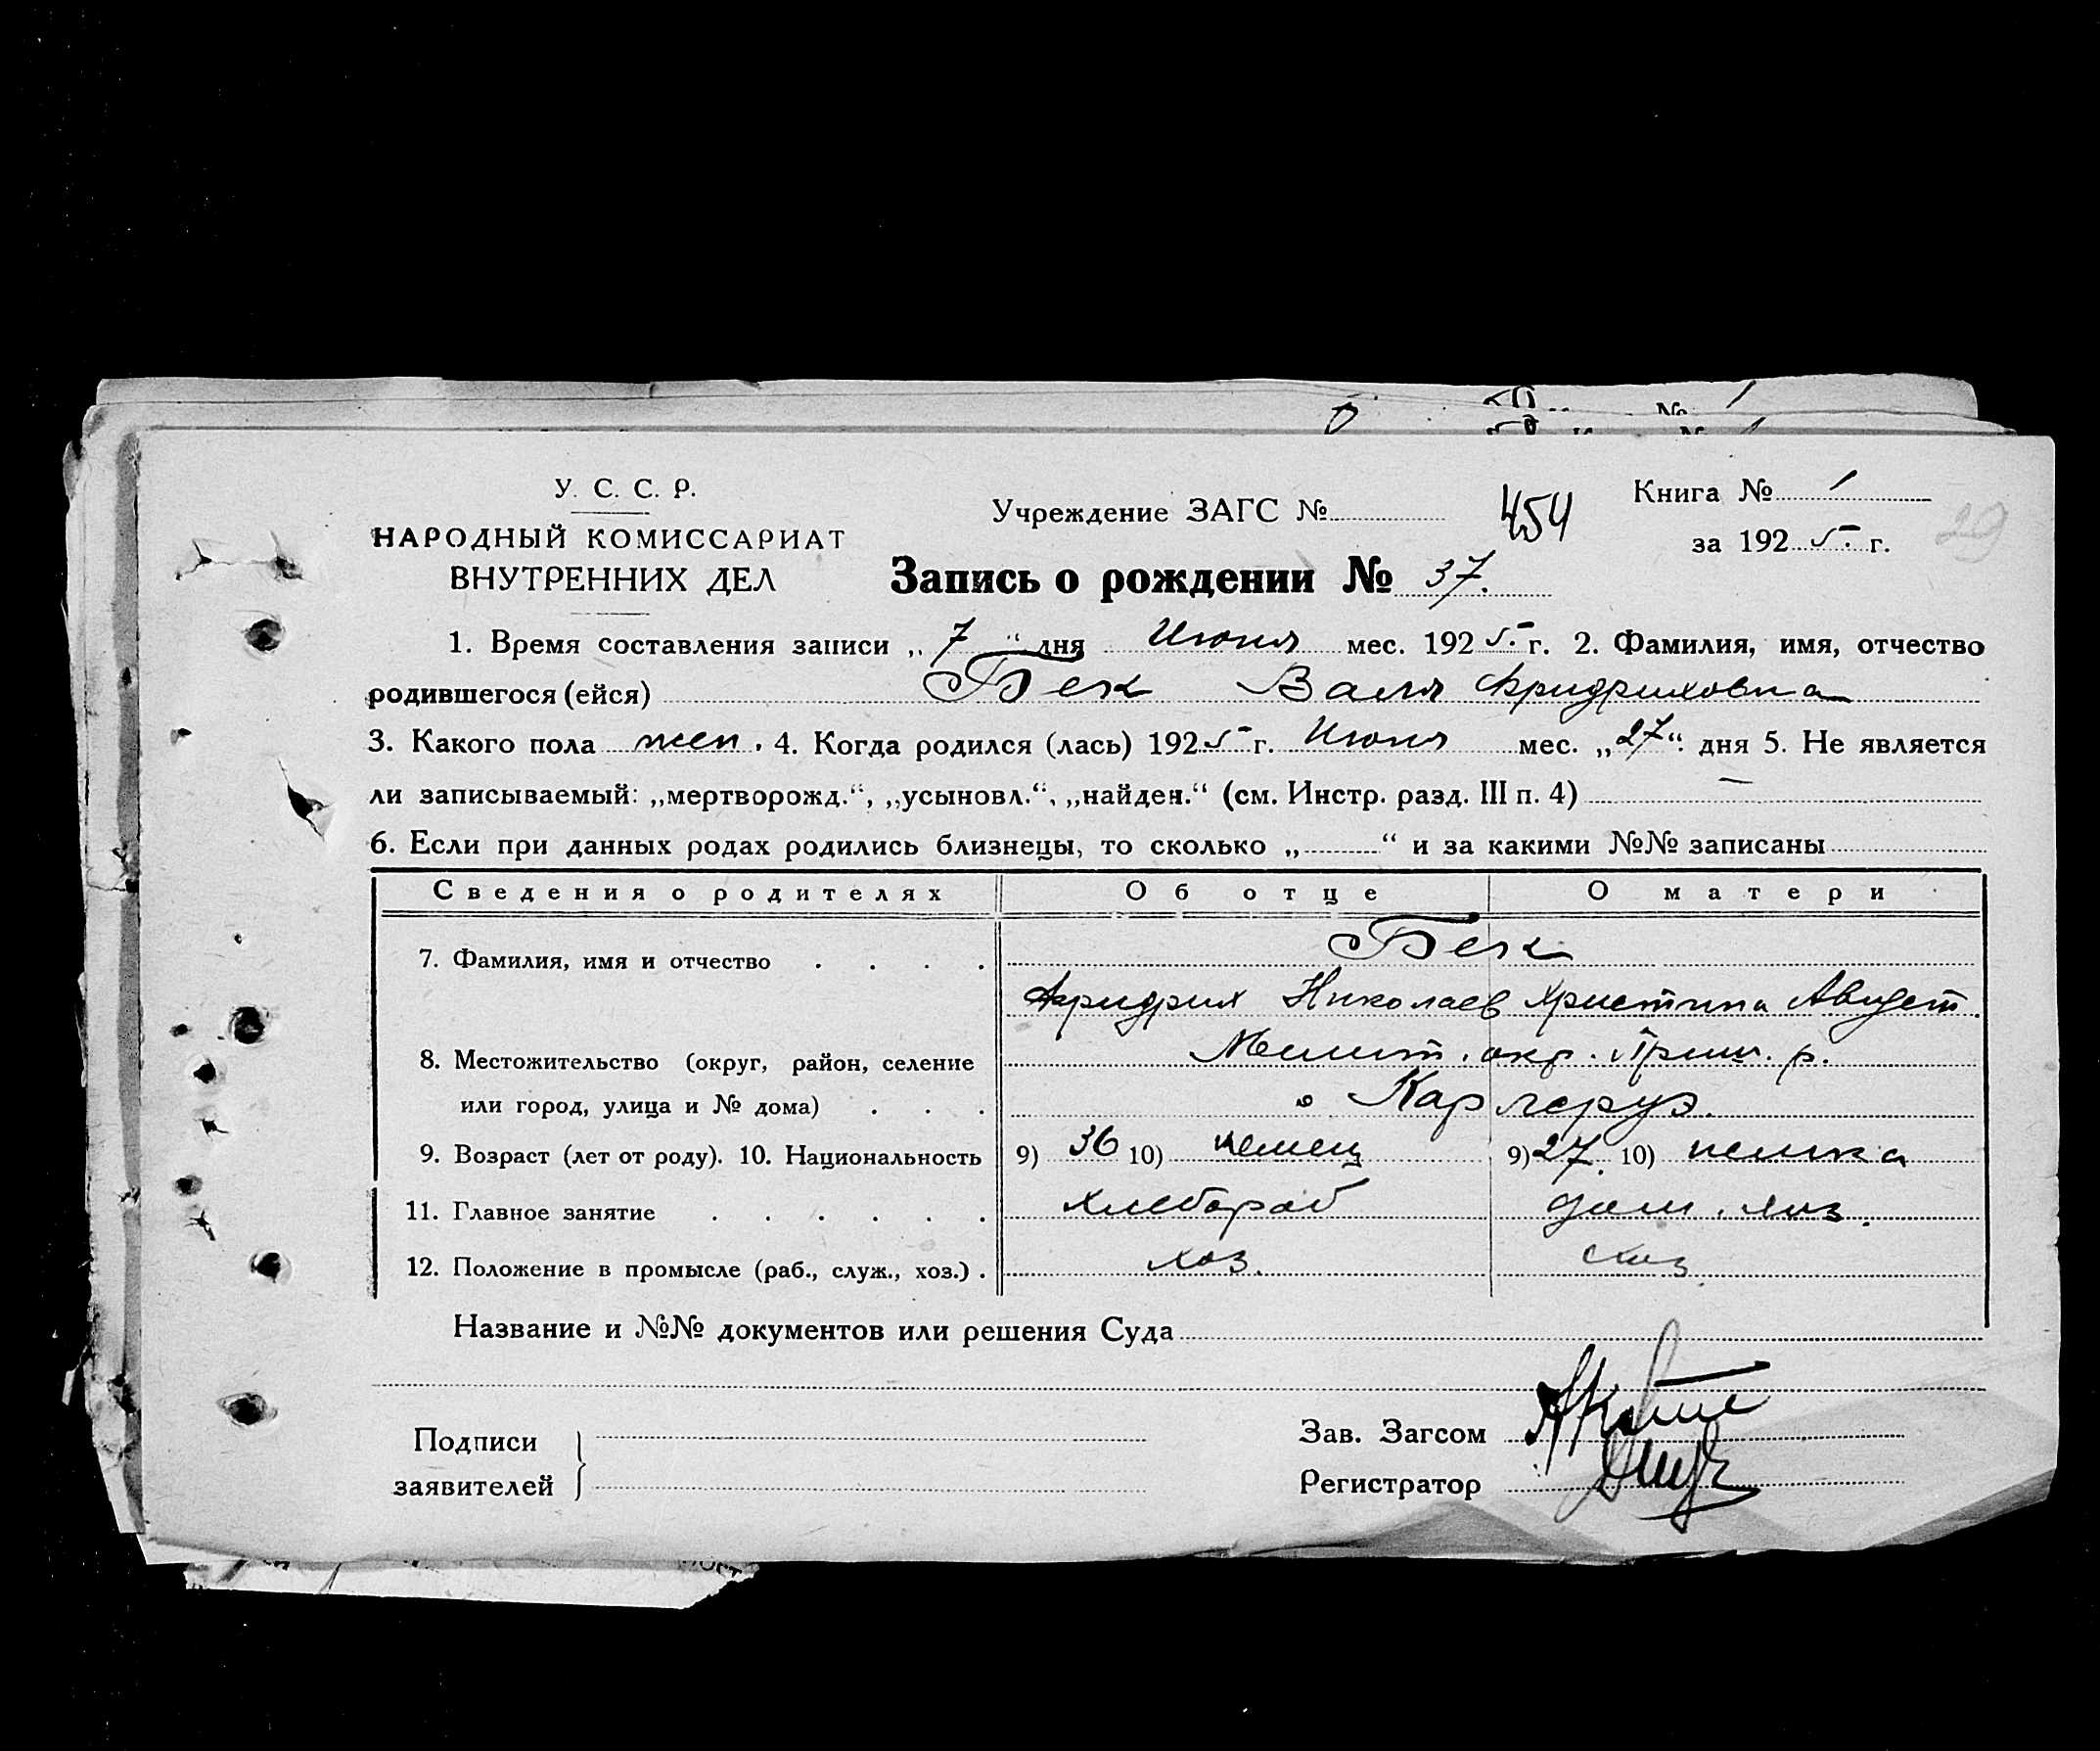 У. С. С. Р.
НАРОДНЫЙ КОМИССАРИАТ
ВНУТРЕННИХ ДЕЛ
Учреждение ЗАГС №
454
Книга № 1
за 1925 г.
29
Запись о рождении № 37.
1. Время составления записи „7“ дня Июня мес. 1925 г. 2. Фамилия, имя, отчество
родившегося (ейся) Бек Валя Фридриховна
3. Какого пола жен. 4. Когда родился (лась) 1925 г. Июня мес. „27“ дня 5. Не является
ли записываемый: „мертворожд.“, „усыновл.“, „найден.“ (см. Инстр. разд. III п. 4) —
6. Если при данных родах родились близнецы, то сколько „ “ и за какими №№ записаны
Сведения о родителях Об отце О матери
7. Фамилия, имя и отчество Бек
Фридрих Николаев Христина Август.
8. Местожительство (округ, район, селение Мелит. окр. Приш. р.
или город, улица и № дома) Карлсруэ.
9. Возраст (лет от роду). 10. Национальность 9) 36 10) немец 9) 27. 10) немка
11. Главное занятие хлебороб дом. хоз.
12. Положение в промысле (раб., служ., хоз.) хоз.
Название и №№ документов или решения Суда
Подписи
заявителей
Зав. Загсом
Регистратор